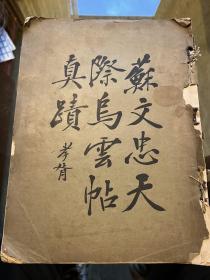 蘇文忠天
際烏雲帖
真蹟 孝胥